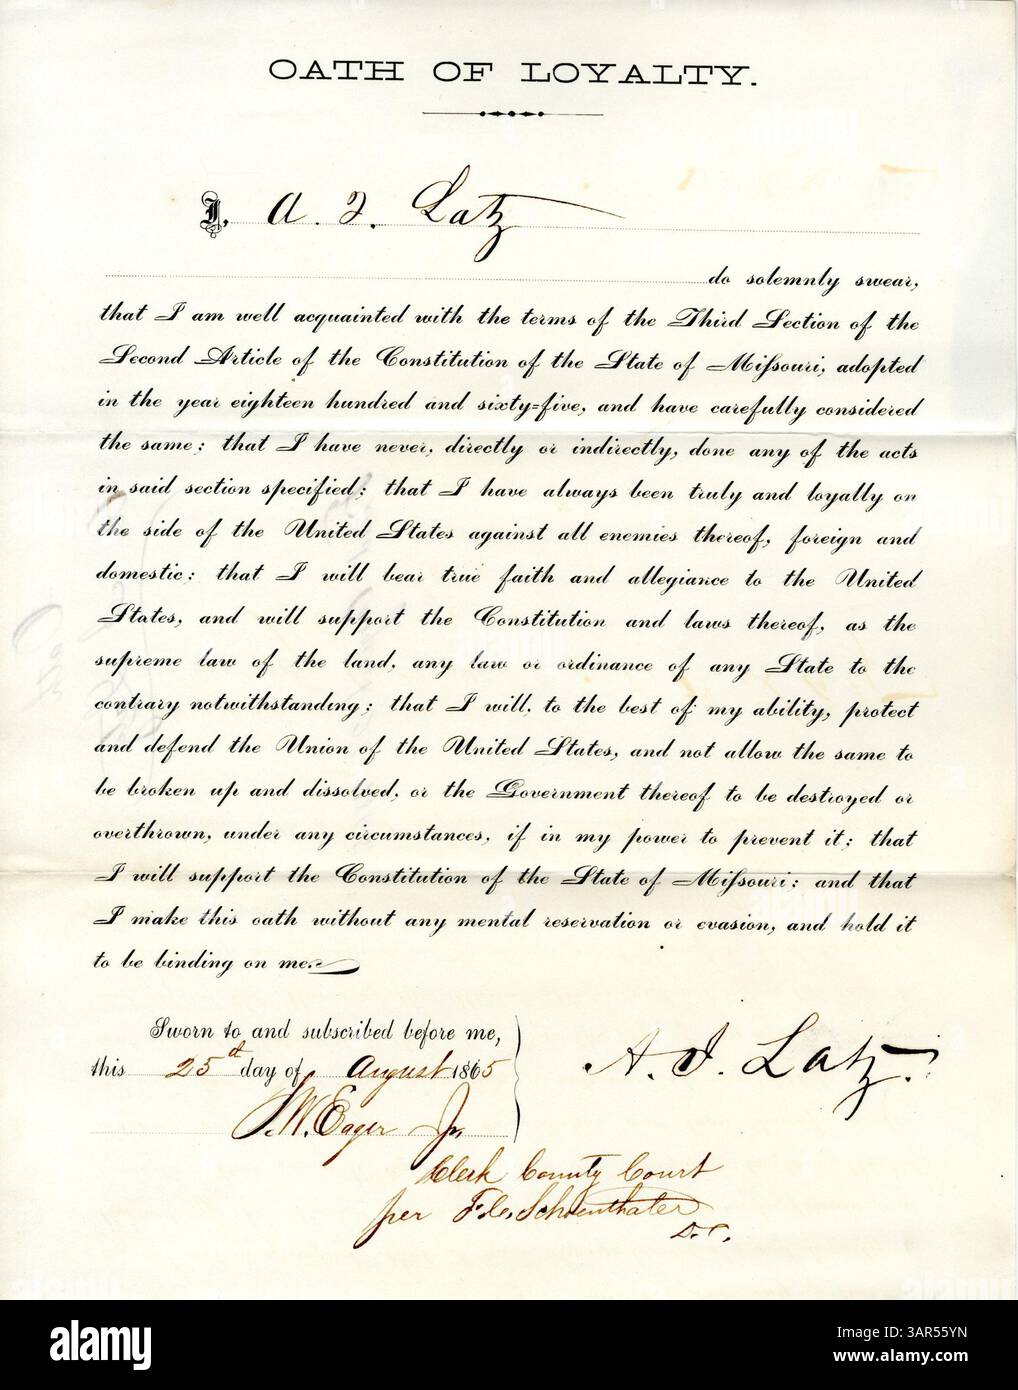 OATH OF LOYALTY.
I, A. J. Latz
do solemnly swear,
that I am well acquainted with the terms of the Third Section of the
Second Article of the Constitution of the State of Missouri, adopted
in the year eighteen hundred and sixty-five, and have carefully considered
the same; that I have never, directly or indirectly, done any of the acts
in said section specified; that I have always been truly and loyally on
the side of the United States against all enemies thereof, foreign and
domestic; that I will bear true faith and allegiance to the United
States, and will support the Constitution and laws thereof, as the
supreme law of the land, any law or ordinance of any State to the
contrary notwithstanding; that I will, to the best of my ability, protect
and defend the Union of the United States, and not allow the same to
be broken up and dissolved, or the Government thereof to be destroyed or
overthrown, under any circumstances, if in my power to prevent it; that
I will support the Constitution of the State of Missouri; and that
I make this oath without any mental reservation or evasion, and hold it
to be binding on me.
Sworn to and subscribed before me,
this 25d day of August 1865
A. J. Latz.
W. Eager Jr.
Clerk County Court
per
D.C.
alamy
Image ID: 3AR55YN
www.alamy.com